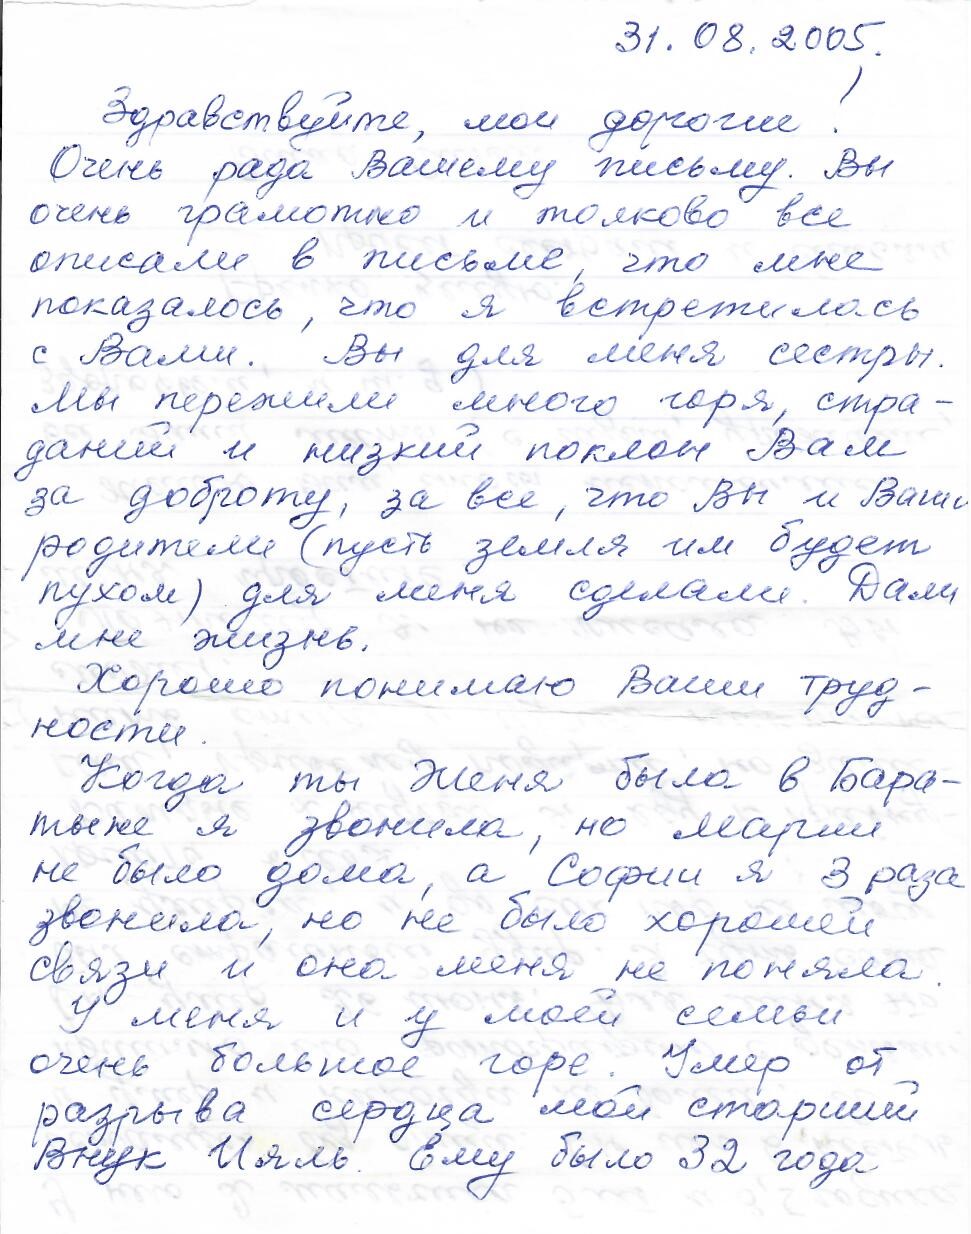 31.08.2005.
Здравствуйте, мои дорогие!
Очень рада Вашему письму. Вы
очень грамотно и толково все
описали в письме, что мне
показалось, что я встретилась
с Вами. Вы для меня сестры.
Мы пережили много горя, стра-
даний и низкий поклон Вам
за доброту, за все, что Вы и Ваши
родители (пусть земля им будет
пухом) для меня сделали. Дали
мне жизнь.
Хорошо понимаю Ваши труд-
ности.
Когда ты Женя была в Бара-
тыне я звонила, но Марии
не было дома, а Софии я 3 раза
звонила, но не было хорошей
связи и она меня не поняла.
У меня и у моей семьи
очень большое горе. Умер от
разрыва сердца мой старший
Внук Ияль. Ему было 32 года